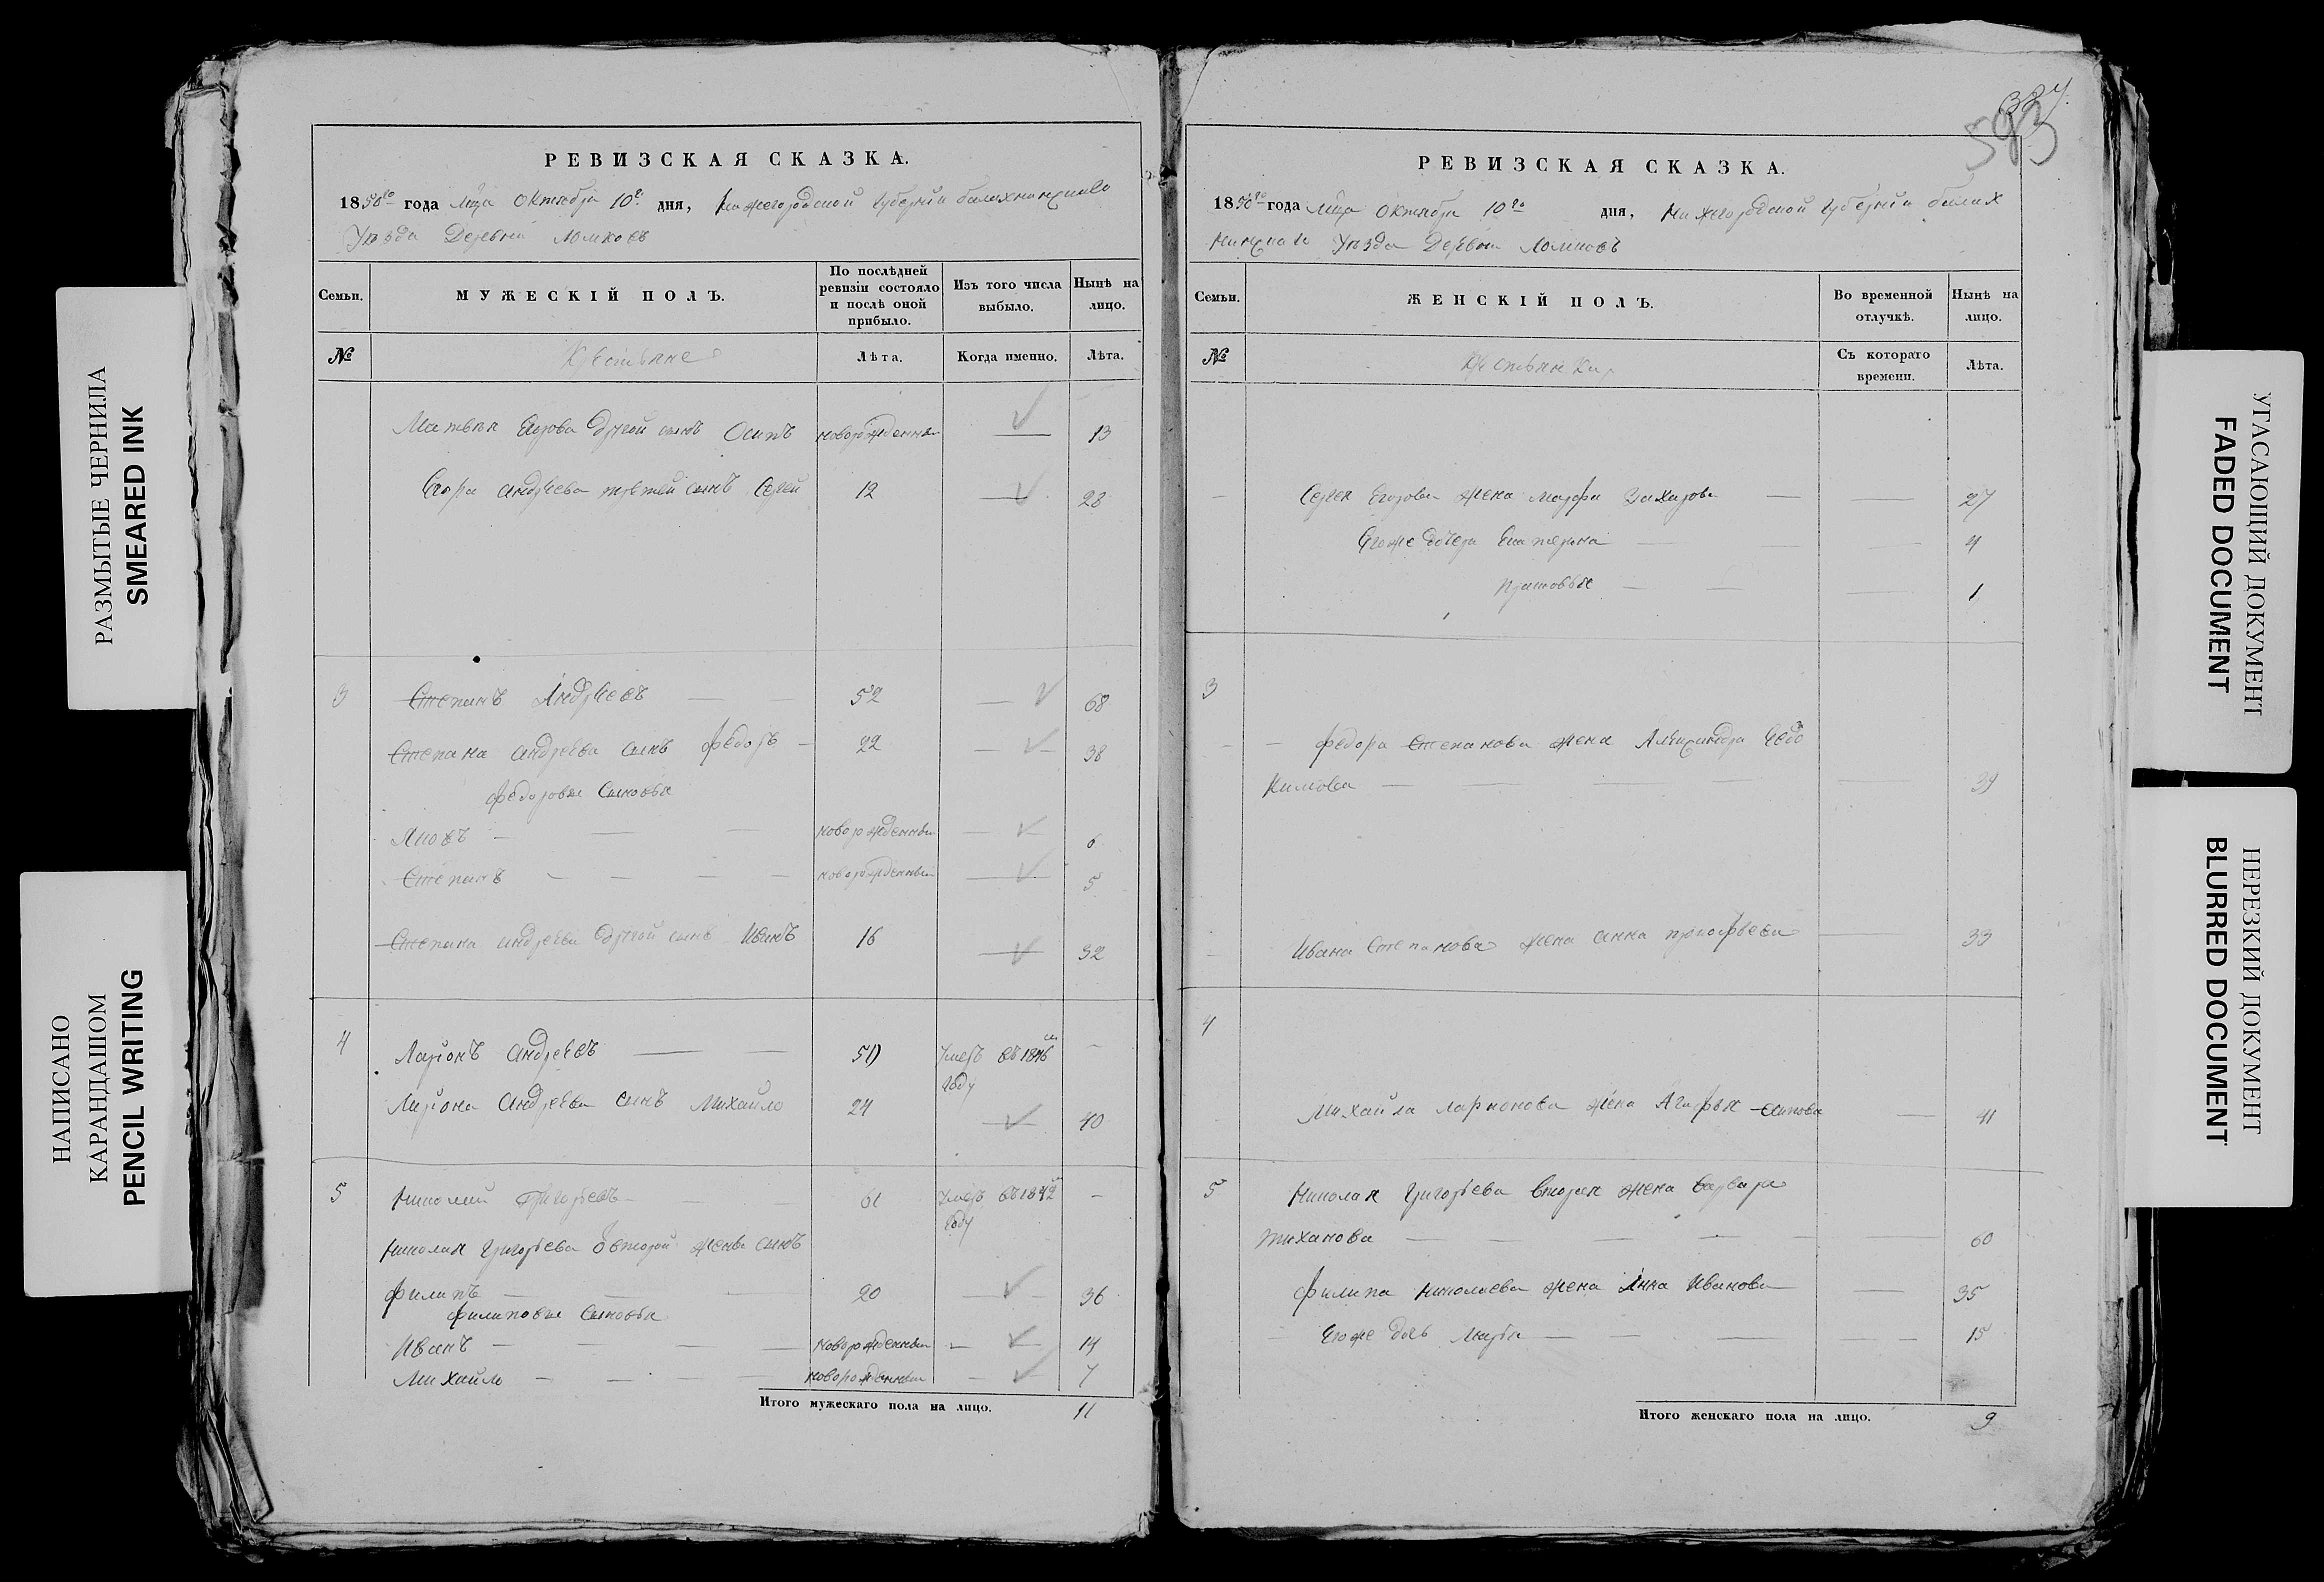 РАЗМЫТЫЕ ЧЕРНИЛА
SMEARED INK
НАПИСАНО
КАРАНДАШОМ
PENCIL WRITING
РЕВИЗСКАЯ СКАЗКА.
1850го года Мца Октября 10го дня, Нижегородской Губернии
Уезда Деревни
Семьи.
МУЖЕСКІЙ ПОЛЪ.
По послѣдней ревизіи состояло и послѣ оной прибыло.
Изъ того числа выбыло.
Нынѣ на лицо.
№
Крестьяне
Лѣта.
Когда именно.
Лѣта.
Матвея Егорова другой сынъ Осипъ новорожденный 13
Егора Андреева третей сынъ Сергей 12 28
3 Степанъ Андреевъ 52 68
Степана Андреева сынъ Федоръ 22 38
Федоровы сыновья
Яковъ новорожденный 6
Степанъ новорожденный 5
Степана Андреева другой сынъ Иванъ 16 32
4 Ларіонъ Андреевъ Умеръ въ 1846
году
Ларіона Андреева сынъ Михайло 24 40
5 Николай Григорьевъ 61 Умеръ въ 1842
году
Николая Григорьева второй жены сынъ
Филипъ 20 36
Филиповы сыновья
Иванъ новорожденный 14
Михайло новорожденный 7
Итого мужескаго пола на лицо. 11
387
593
РЕВИЗСКАЯ СКАЗКА.
1850го года Мца Октября 10го дня, Нижегородской Губернии Балах
нинскаго Уезда Деревни
Семьи.
ЖЕНСКІЙ ПОЛЪ.
Во временной отлучкѣ.
Нынѣ на лицо.
№
Крестьянки
Съ котораго времени.
Лѣта.
Сергея Егорова жена Марфа Захарова 27
Егоже дочери Екатерина 4
Прасковья 1
3
Федора Степанова жена Александра Евдо
кимова 39
Ивана Степанова жена Анна Прокофьева 33
4
Михайла Ларионова жена Агафья 41
5 Николая Григорьева вторая жена Варвара
Тиханова 60
Филипа Николаева жена Анна Иванова 35
Егоже дочь Марья 15
Итого женскаго пола на лицо. 9
УГАСАЮЩИЙ ДОКУМЕНТ
FADED DOCUMENT
НЕРЕЗКИЙ ДОКУМЕНТ
BLURRED DOCUMENT